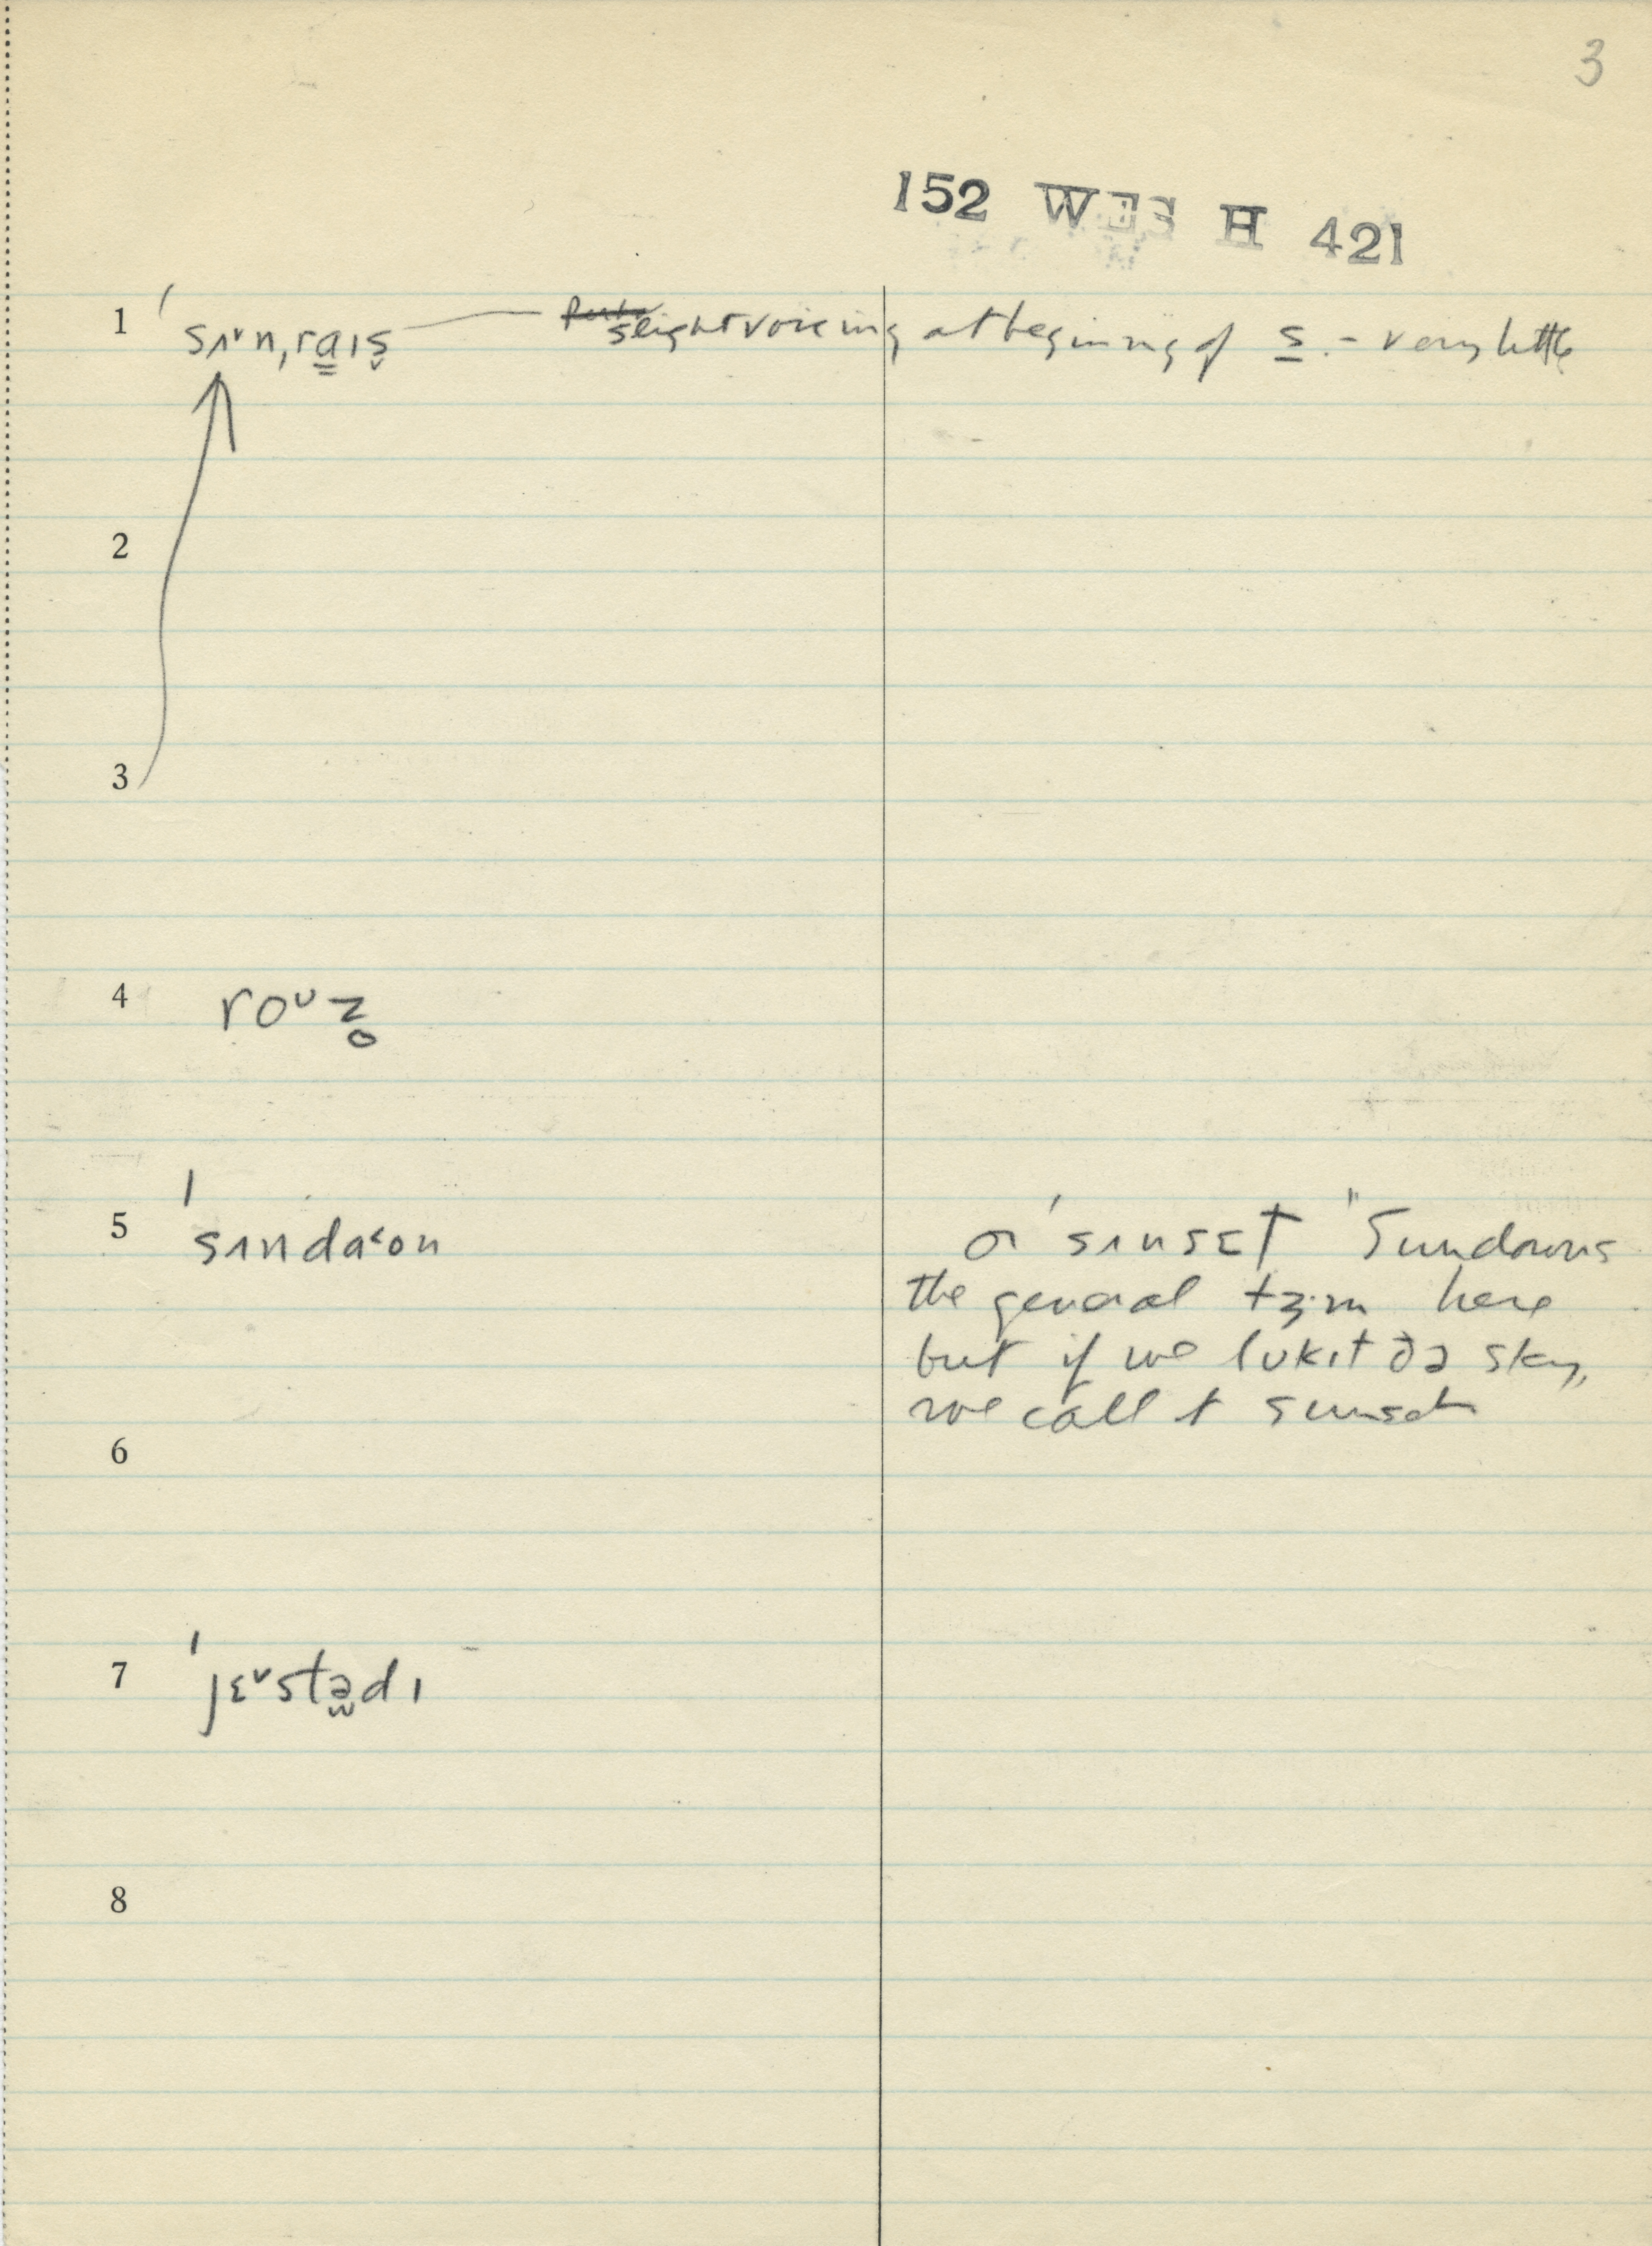 3
152 WES H 421
1 ˈsʌ˅n,ra̳ɪs̬ slight voicing at beginning of s. - very little
2
3
4 roᶷz̥
5 ˈsʌnda˂on or ˈsʌnsɛt "Sundowns
the general tɜ·m here
but if we lʊkɪt ðə sky,
we call it sunset
6
7 ˈjɛ˅stə̫dɪ
8